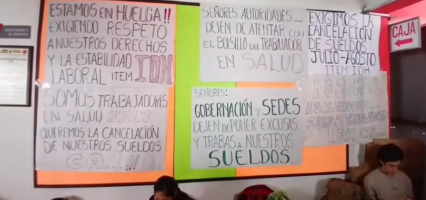 ESTAMOS EN HUELGA!!
EXIGIENDO RESPETO
A NUESTROS DERECHOS
Y LA ESTABILIDAD
LABORAL ITEM IDH
SOMOS TRABAJADORES
EN SALUD
QUEREMOS LA CANCELACIÓN
DE NUESTROS SUELDOS
SEÑORES AUTORIDADES....
DEJEN DE ATENTAR CON
EL BOLSILLO DEL TRABAJADOR
EN SALUD
SEÑORES:
GOBERNACIÓN Y SEDES
DEJEN DE PONER EXCUSAS
Y TRABAS A NUESTROS
SUELDOS
EXIGIMOS LA
CANCELACIÓN
DE SUELDOS
JULIO-AGOSTO
ITEM IDH
CAJA